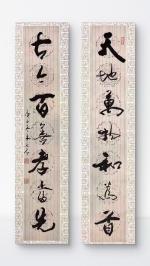 天地萬物和為首
古今百善孝當先